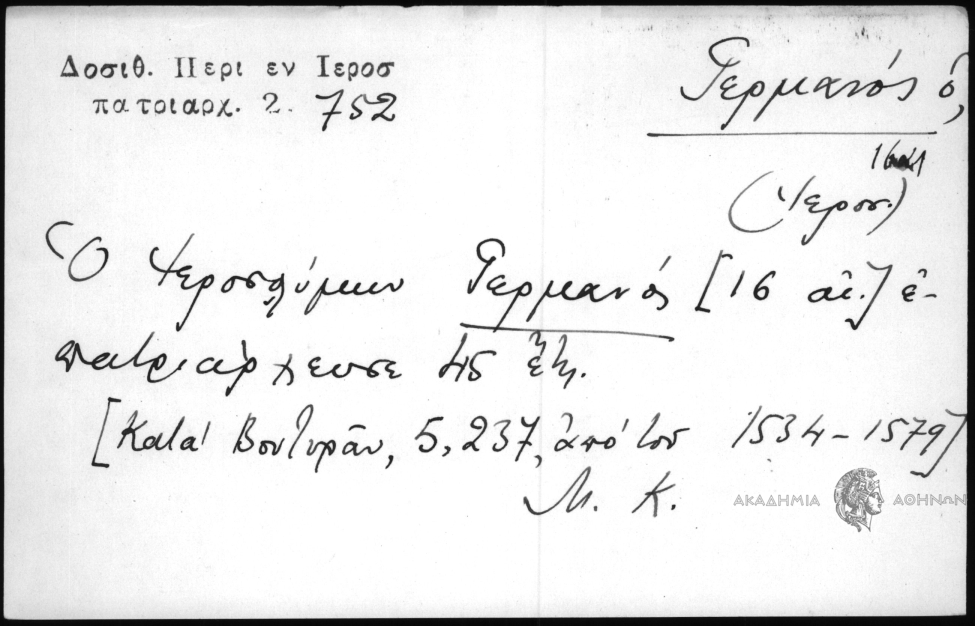 Δοσιθ. Περι εν Ιεροσ
πατριαρχ. 2. 752
Γερμανός ὁ,
(Ἱεροσ.)
Ὁ Ἱεροσολύμων Γερμανός [16 αἰ.] ἐ-
πατριάρχευσε 45 ἔτη.
[Κατά Βουτυρᾶν, 5, 237, ἀπό τοῦ 1534-1579]
Μ. Κ.
ΑΚΑΔΗΜΙΑ ΑΘΗΝΩΝ